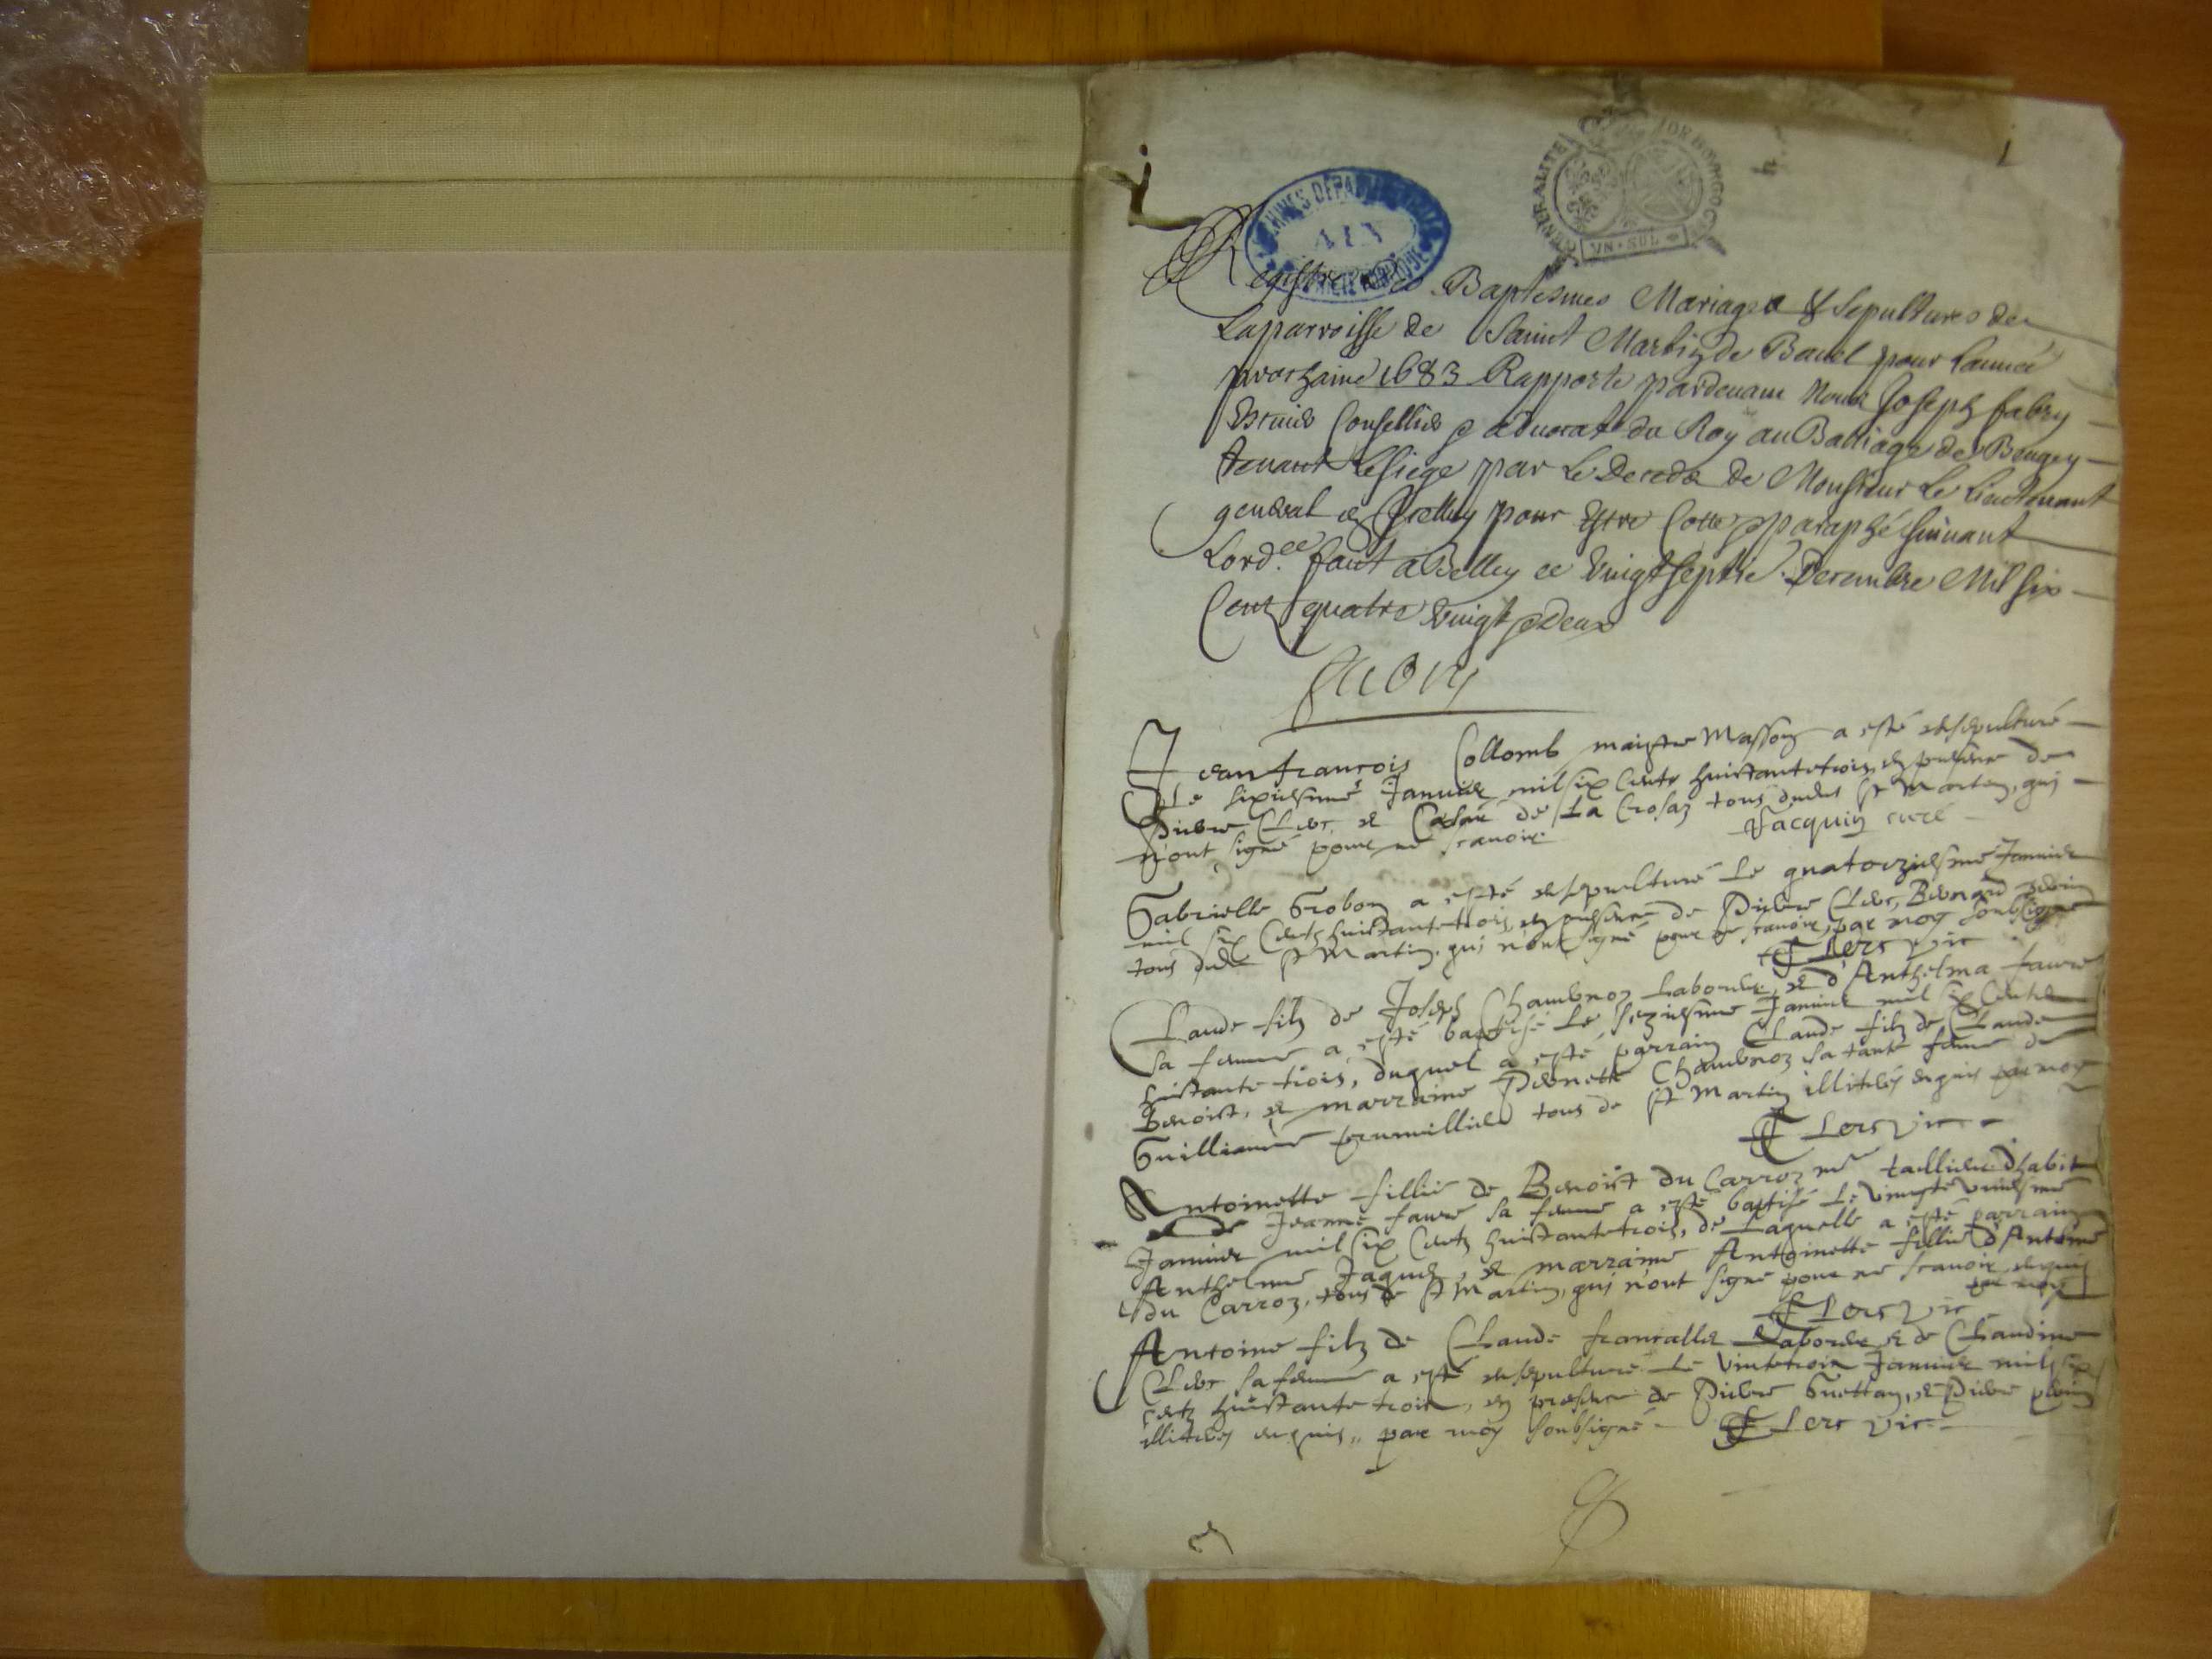 ARCHIVES DÉPARTEMENTALES
AIN
GENERALITE DE BOURGOGNE
VN · SOL
Registre des Baptesmes Mariages & Sepultures de
Laparroisse de Saint Martin de Bavel pour lannée
prochaine 1683 Rapporte pardeuant Nous Joseph fabry
Escuier Conseiller & aduocat du Roy au Balliage de Beugey
tenant Le siege par le Decedz de Monsieur Le Lieutenant
general de Belley pour Estre Cotte & paraphé suiuant
Lord.ce fait a Belley ce vingtseptie. Decembre Mil six
Centz quatre vingt & Deux
fabry
Jean francois Collomb maistre Masson a esté ensepulturé
Le sixiesme Januier mil six Cents huictantetrois, en presence de
Pierre Clerc, et César de La Crosaz tous dudit St Martin, qui
n'ont signé pour ne scauoir Jacquin curé
Gabrielle Grobon a esté ensepulturé Le quatorziesme Januier
mil six Centz huictantetrois, en presence de Pierre Clerc, Bernard
tous dudit St Martin, qui n'ont signé pour ne scauoir, par moy soubsigné
Clerc vic
Claude filz de Joseph Chamenoz Laboureur, et d'Anthelma faure
sa femme a esté baptisé Le seziesme Januier mil six Centz
huictante trois, duquel a esté parrain Claude filz de Claude
Benoist, et marraine Pernette Chamenoz sa tante femme de
Guilliaume tous de St Martin illiterés enquis par moy
Clerc vic
Antoinette fillie de Benoist du Carroz me taillieur d'habit
et de Jeanne faure sa femme a esté baptisé Le vingte vniesme
Januier mil six Centz huictantetrois, de Laquelle a esté parrain
Anthelme Jaquet, et marraine Antoinette fillie d'Antoine
du Carroz, tous de St Martin, qui n'ont signé pour ne scauoir, enquis
par moy
Clerc vic
Antoine filz de Claude francallet Laboureur et de Claudine
Clerc sa femme a esté ensepulturé Le vintetrois Januier mil six
centz huictante trois, en presence de Pierre Guettan, et Pierre
illiterés enquis, par moy soubsigné Clerc vic